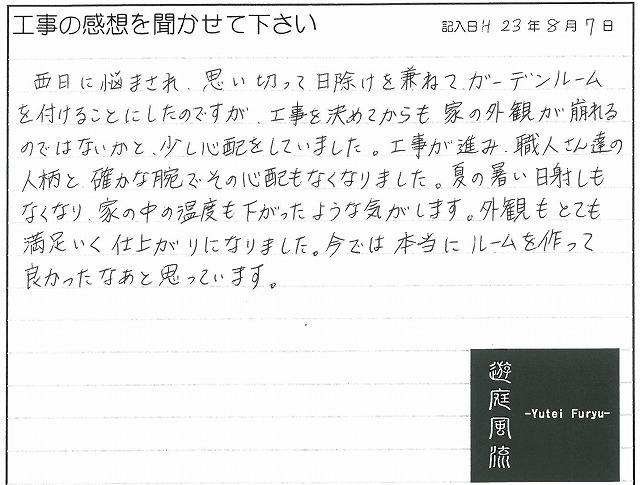 工事の感想を聞かせて下さい
記入日H 23年8月7日
西日に悩まされ、思い切って日除けを兼ねて、ガーデンルーム
を付けることにしたのですが、工事を決めてからも家の外観が崩れる
のではないかと、少し心配をしていました。工事が進み、職人さん達の
人柄と、確かな腕でその心配もなくなりました。夏の暑い日射しも
なくなり、家の中の温度も下がったような気がします。外観もとても
満足いく仕上がりになりました。今では本当にルームを作って
良かったなあと思っています。
遊庭風流
-Yutei Furyu-